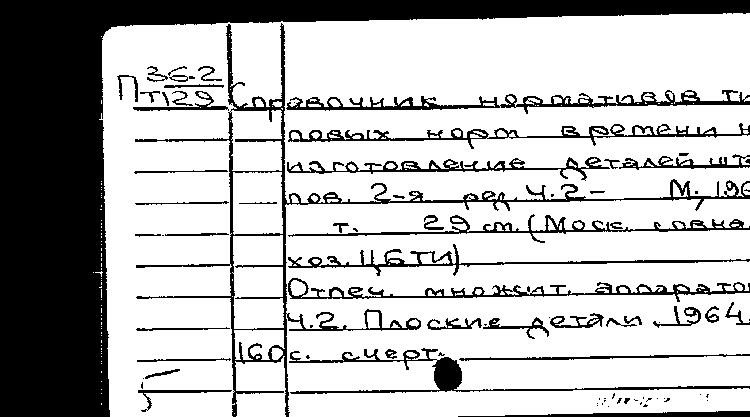 П 36-2
Т129 Справочник нормативов ти
повых норм времени н
изготовление деталей шта
пов. 2-я ред. Ч.2- М., 196
т. 29 см. (Моск. совна
хоз. ЦБТИ)
Отпеч. множит. аппарато
Ч.2. Плоские детали. 1964.
160 с. с черт.
5